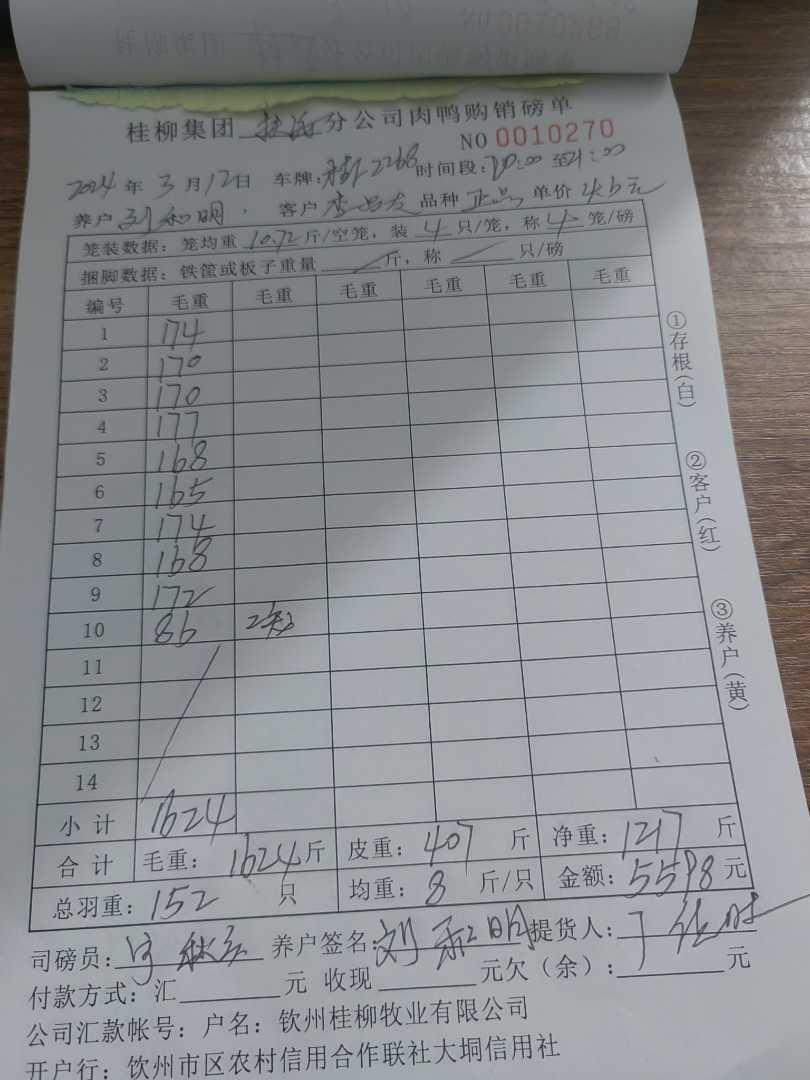 桂柳集团 分公司肉鸭购销磅单
NO 0010270
2024 年 3 月 12 日 车牌: 2268 时间段: 20:00 至 21:00
养户 刘和明 客户 李 品种 正品 单价 4.6 元
笼装数据: 笼均重 10.72 斤/空笼, 装 4 只/笼, 称 4 笼/磅
捆脚数据: 铁筐或板子重量 斤, 称 只/磅
编号 毛重 毛重 毛重 毛重 毛重 毛重
1 174
2 170
3 170
4 177
5 168
6 165
7 174
8 168
9 172
10 86 2笼
11
12
13
14
小计 1624
合计 毛重: 1624 斤 皮重: 407 斤 净重: 1217 斤
总羽重: 152 只 均重: 8 斤/只 金额: 5598 元
司磅员: 养户签名: 刘和明 提货人:
付款方式: 汇 元 收现 元欠(余): 元
公司汇款帐号: 户名: 钦州桂柳牧业有限公司
开户行: 钦州市区农村信用合作联社大垌信用社
①存根(白)
②客户(红)
③养户(黄)